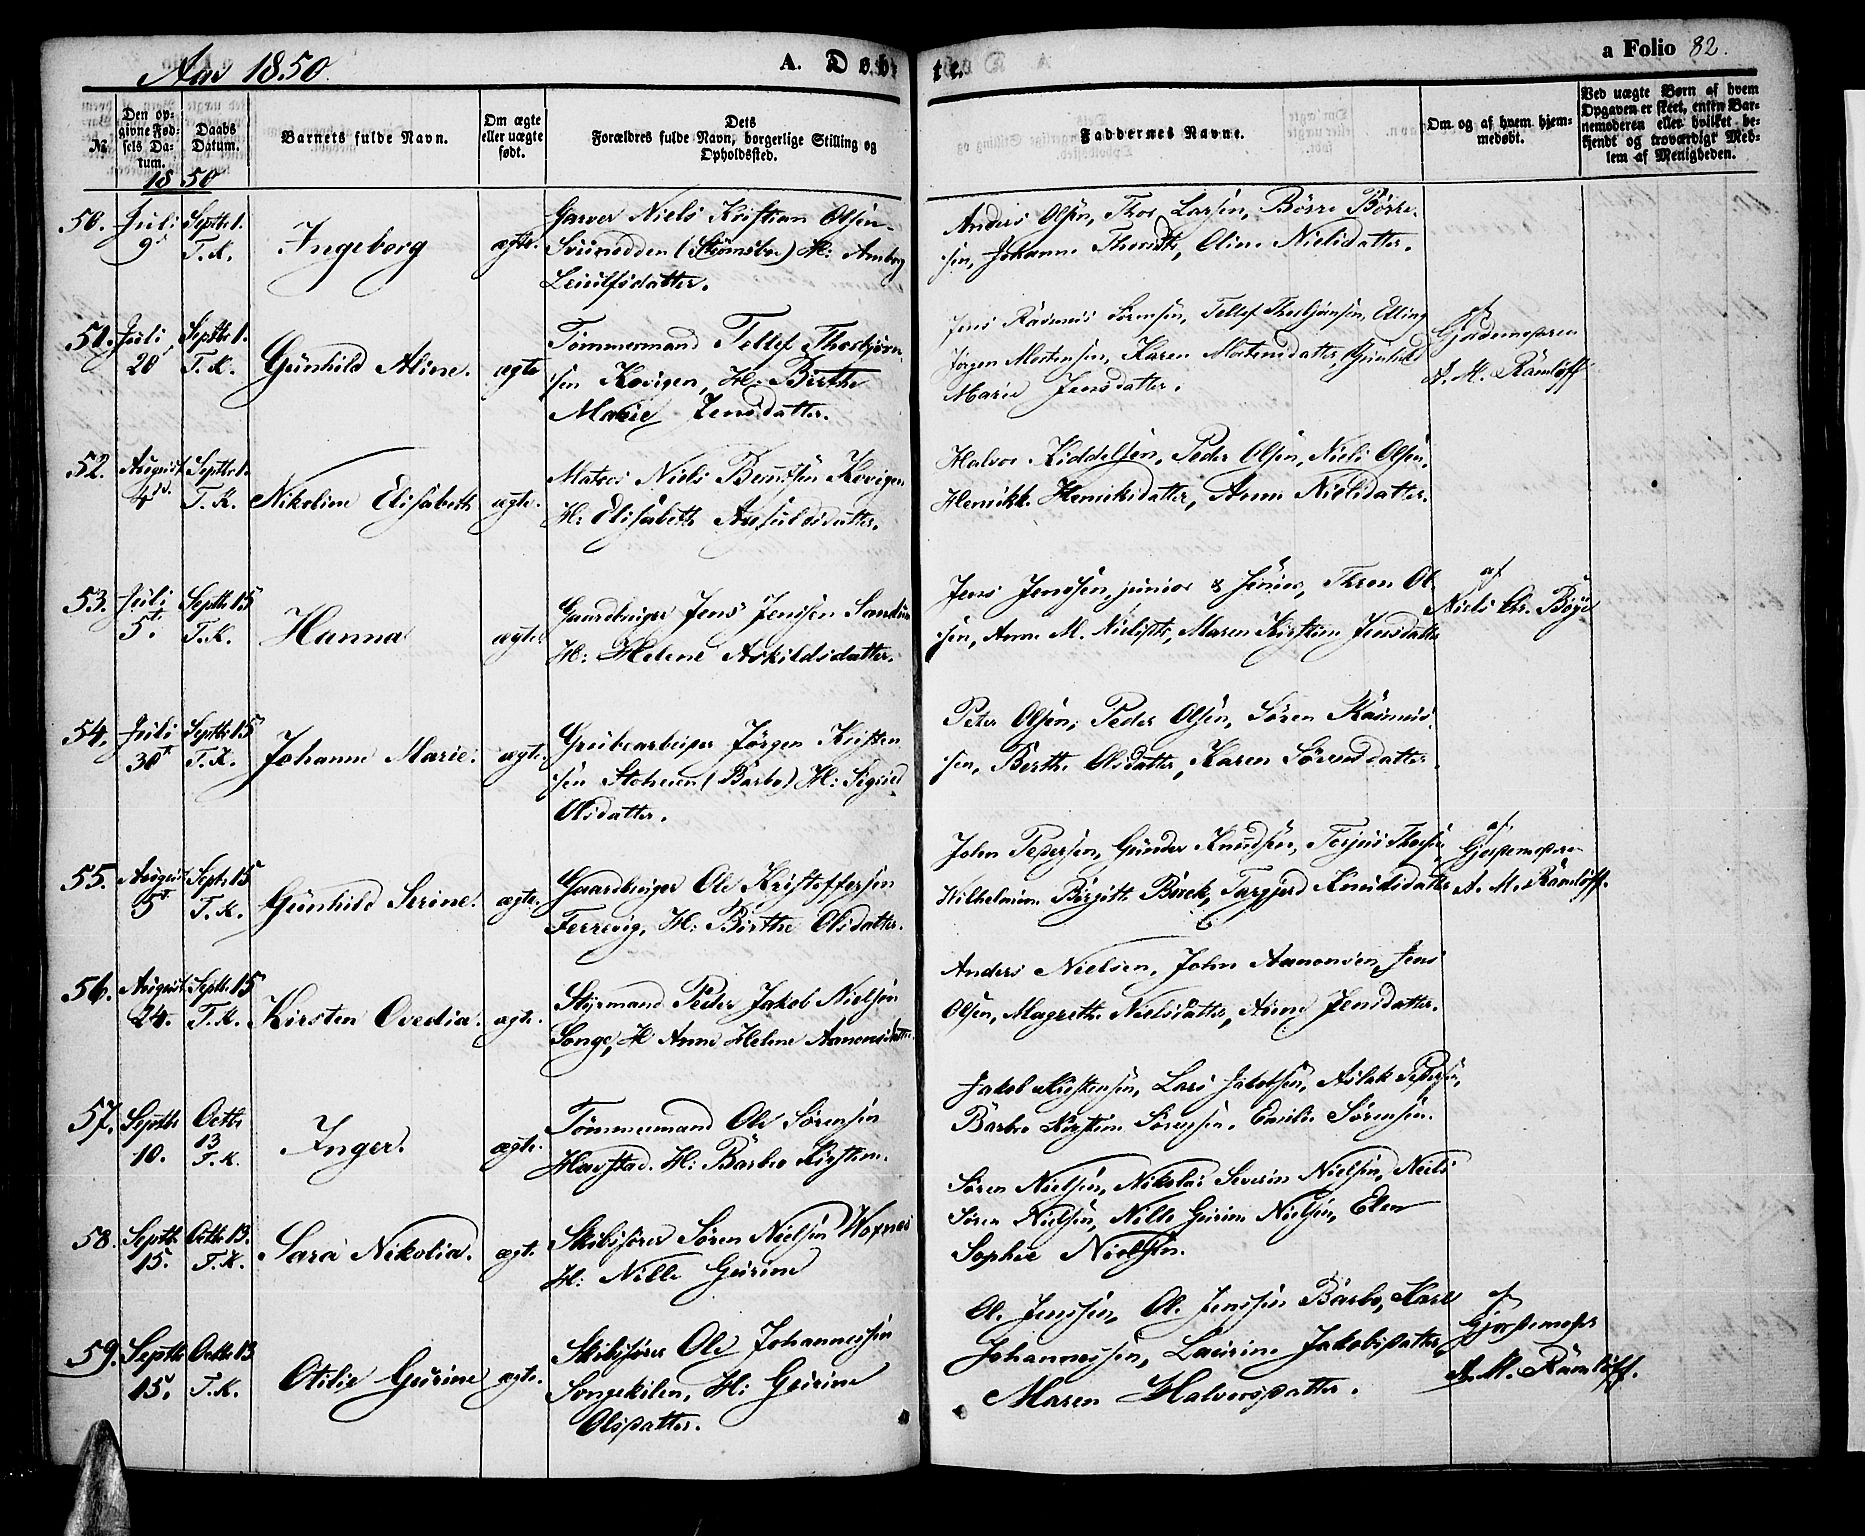 Aar 1850.
A. Døbte.
a Folio 82.
№
Den opgivne Fødsels Datum.
Daabs Datum.
Barnets fulde Navn.
Om ægte eller uægte født.
Dets Forældres fulde Navn, borgerlige Stilling og Opholdssted.
Faddernes Navne.
Om og af hvem hjemmedøbt.
Ved uægte Børn af hvem Opgaven er skeet, enten Barnemoderen eller hvilket bekjendt og troværdigt Medlem af Menigheden.
1850
50. Juli 9de Septbr 1. T. K.
Ingeborg
ægte.
Garver Niels Kristian Olsen
(Strømsbo) H: Anborg
Leiulfsdatter.
Anders Olsen, Thor Larsen, Børre Børre-
sen, Johanne Thorsdtr, Oline Nielsdatter.
51. Juli 20 Septbr 1. T. K.
Gunhild Aline.
ægte
Tømmermand Tellef Thorbjørn-
sen Kovigen, H: Birthe
Marie Jensdatter.
Jens Rasmus Sørensen, Tellef Thorbjørnsen, Elling
Jørgen Mortensen, Karen Mortensdatter, Gunhild
Marie Jensdatter.
af
Gjordemoderen
A. M. Ramløff
52. August 4de Septbr 1. T. K.
Nikoline Elisabeth
ægte.
Matros Niels Berntsen Kovigen
H: Elisabeth Ansuldsdatter.
Halvor Kiddelsen, Peder Olsen, Niels Olsen,
Henrikke Henriksdatter, Anne Nielsdatter.
53. Juli 5te Septbr 15 T. K.
Hanna
ægte.
Gaardbruger Jens Jenssen
H: Helene Askildsdatter.
Jens Jenssen junior & senior, Thron Ol-
sen, Anne M. Nielsdtr, Maren Kirstine Jensdatter
af
Niels Chr. Bøye
54. Juli 30te Septbr 15 T. K.
Johanne Marie.
ægte.
Grubearbeider Jørgen Kristen-
sen Stoheien (Barbo) H: Sigrid
Olsdatter.
Peter Olsen, Peder Olsen, Søren Rasmus-
sen, Berthe Olsdatter, Karen Sørensdatter.
55. August 5te Septbr 15 T. K.
Gunhild Serine.
ægte.
Gaardbruger Ole Kristoffersen
Ferrevig, H: Birthe Olsdatter.
John Pedersen, Gunder Knudsen, Terjus
Wilhelmine Birgitte Boeck, Targjerd Knudsdatter
af
Gjordemoderen
A. M. Ramløff.
56. August 24. Septbr 15 T. K.
Kirsten Ovedia.
ægte.
Styrmand Peder Jakob Nielsen
Songe, H Anne Helene Aanonsdatter.
Anders Nielsen, John Aanonsen, Jens
Olsen, Magrethe Nielsdatter, Anne Jensdatter.
57. Septbr 10. Octbr 13 T. K.
Inger.
ægte.
Tømmermand Ole Sørensen
Havstad. H: Barbro Kirstine.
Jakob Kristensen, Lars Jakobsen, Aslak Pedersen,
Barbro Kirstine Sørensen, Emilie Sørensen.
58. Septbr 15. Octbr 13. T. K.
Sara Nikolia.
ægte.
Skibsfører Søren Nielsen Woxnes
H: Nille Gurine
Søren Nielsen, Nikolai Severin Nielsen, Niels
Søren Nielsen, Nille Gurine Nielsen, Elen
Sophie Nielsen.
59. Septbr 15. Octbr 13 T. K.
Otilie Gurine
ægte.
Skibsfører Ole Johannessen
Songekilen, H: Gurine
Olsdatter.
Ole Jenssen, Ole Jenssen Barbo, Karl
Johannessen, Laurine Jakobsdatter
Maren Halvorsdatter.
af
Gjordemoder
A. M. Ramløff.